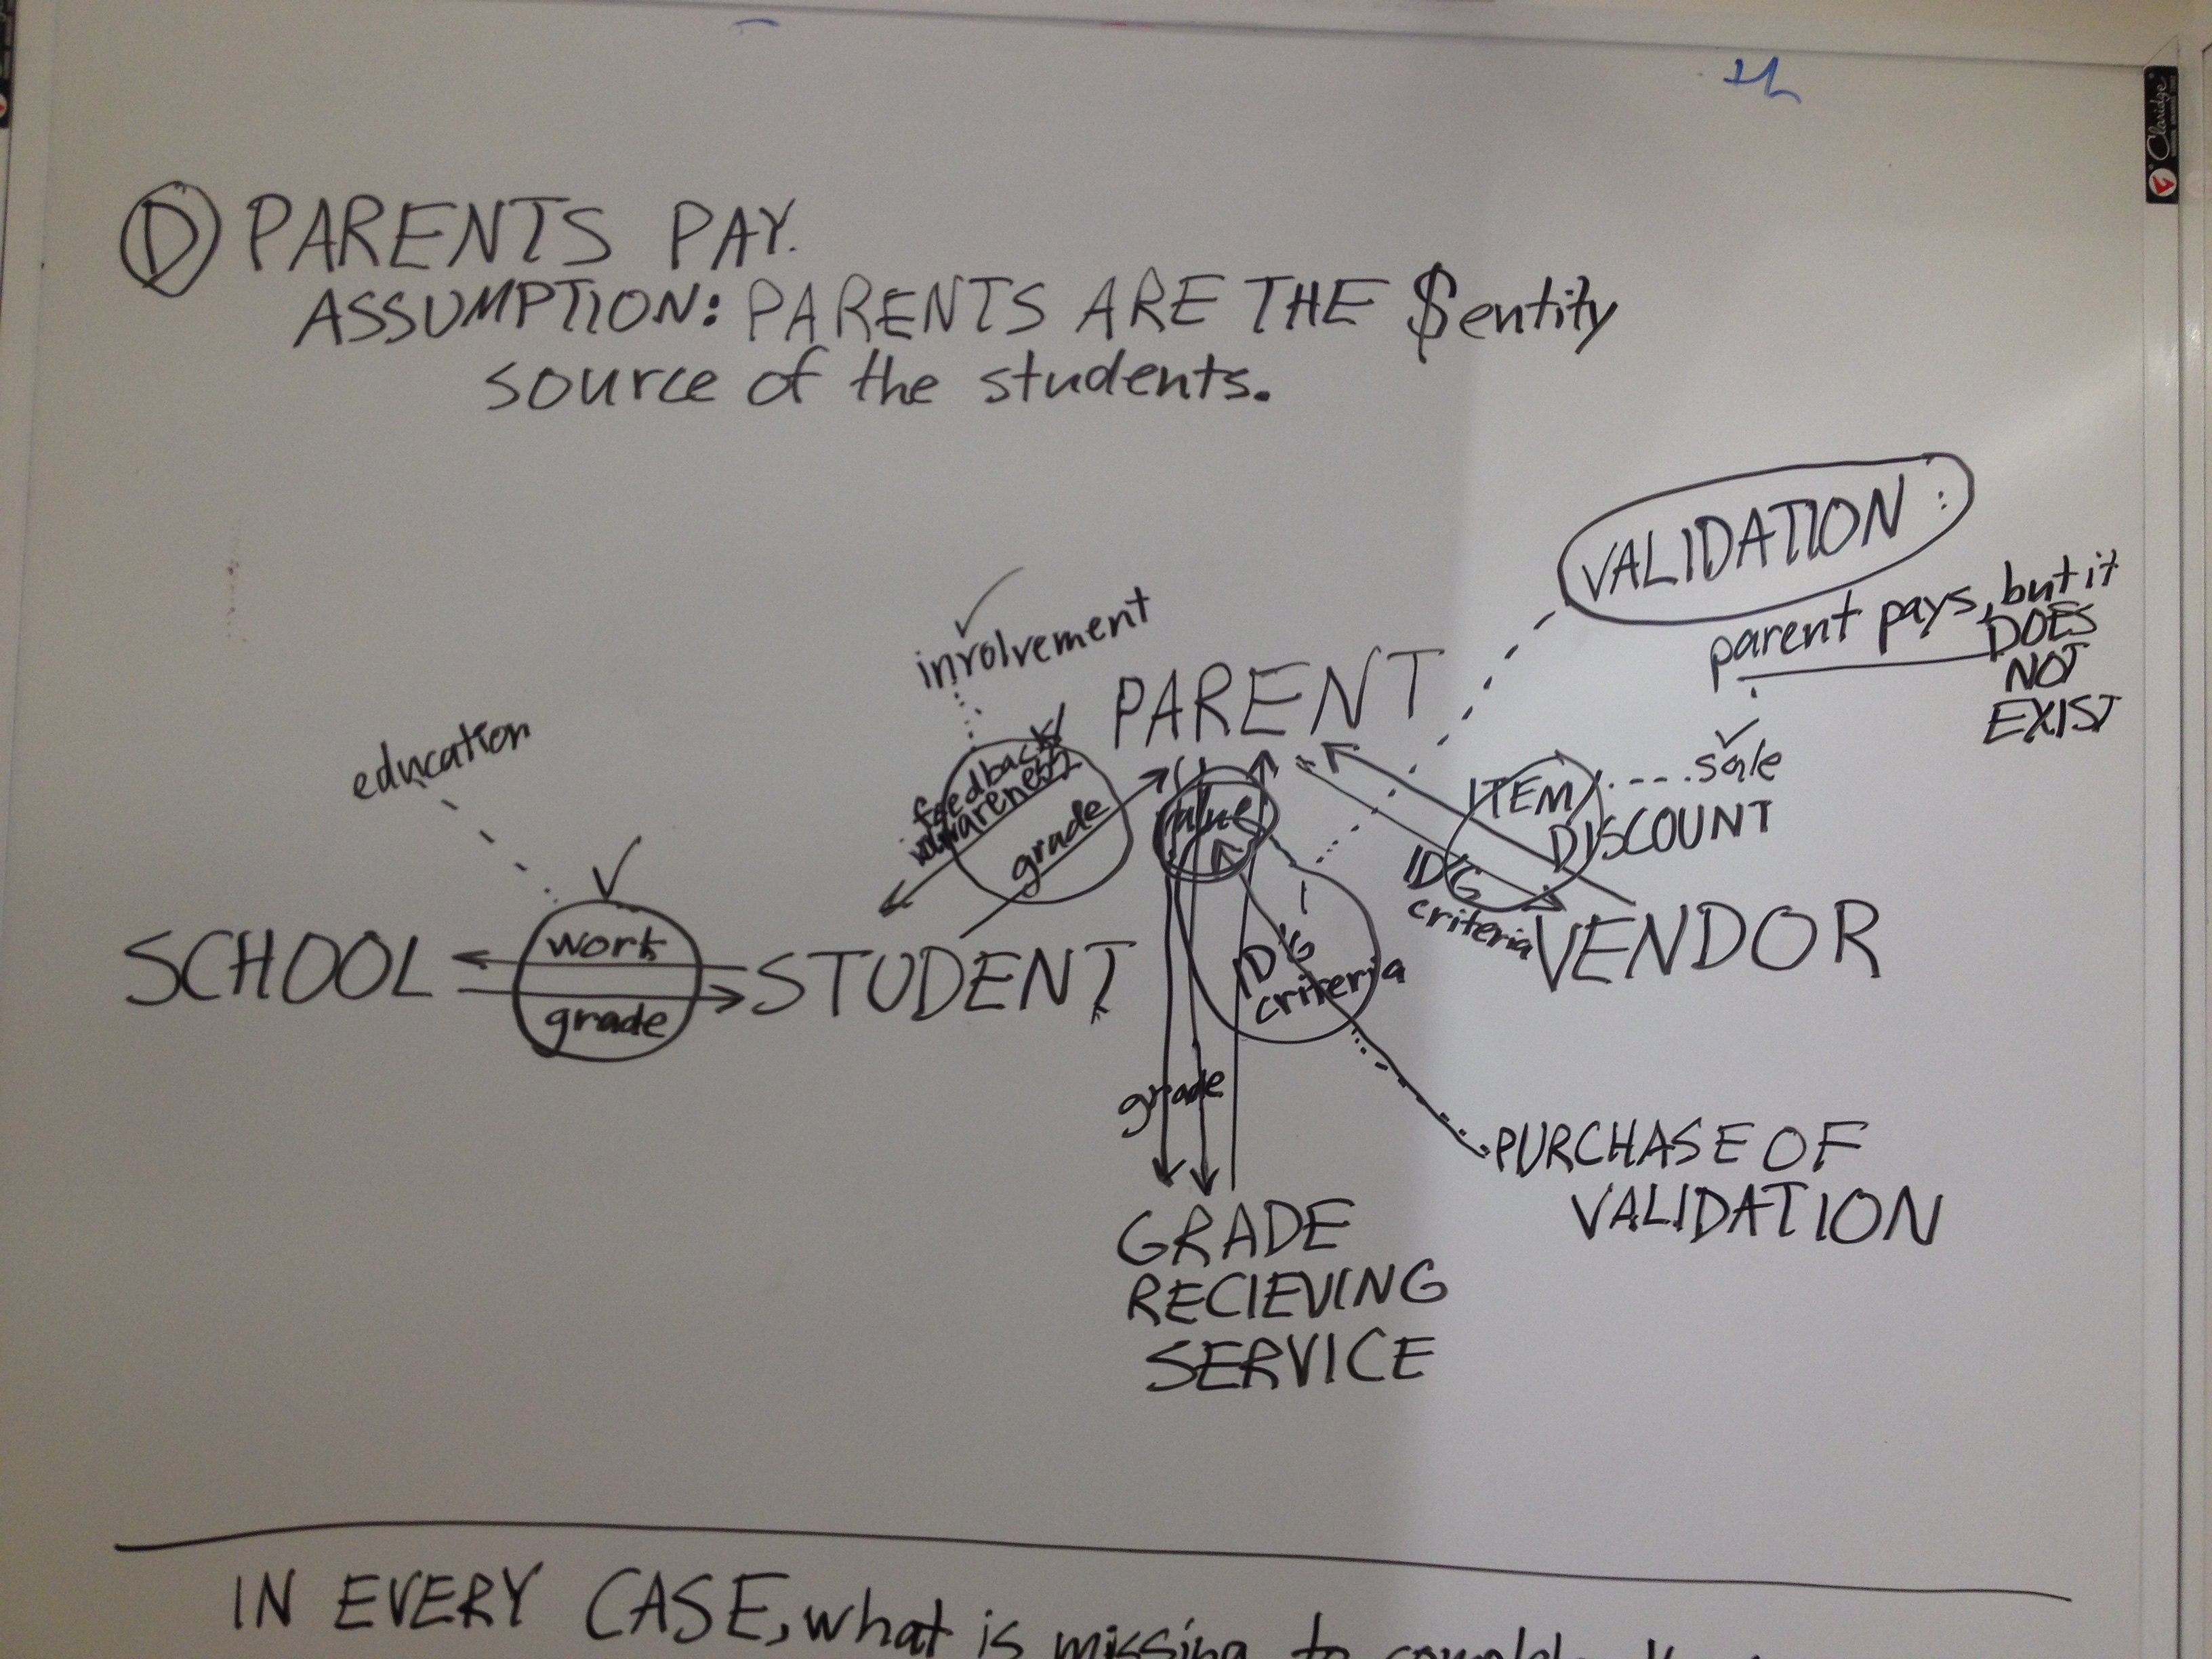 Claridge
D PARENTS PAY.
ASSUMPTION: PARENTS ARE THE $entity
source of the students.
VALIDATION:
parent pays, but it
DOES
NOT
EXIST
involvement
PARENT
education
feedback/
awareness
grade
value
ITEM
DISCOUNT
sale
ID'G
criteria
SCHOOL
work
grade
STUDENT
ID'G
criteria
VENDOR
grade
PURCHASE OF
VALIDATION
GRADE
RECIEVING
SERVICE
IN EVERY CASE, what is missing to